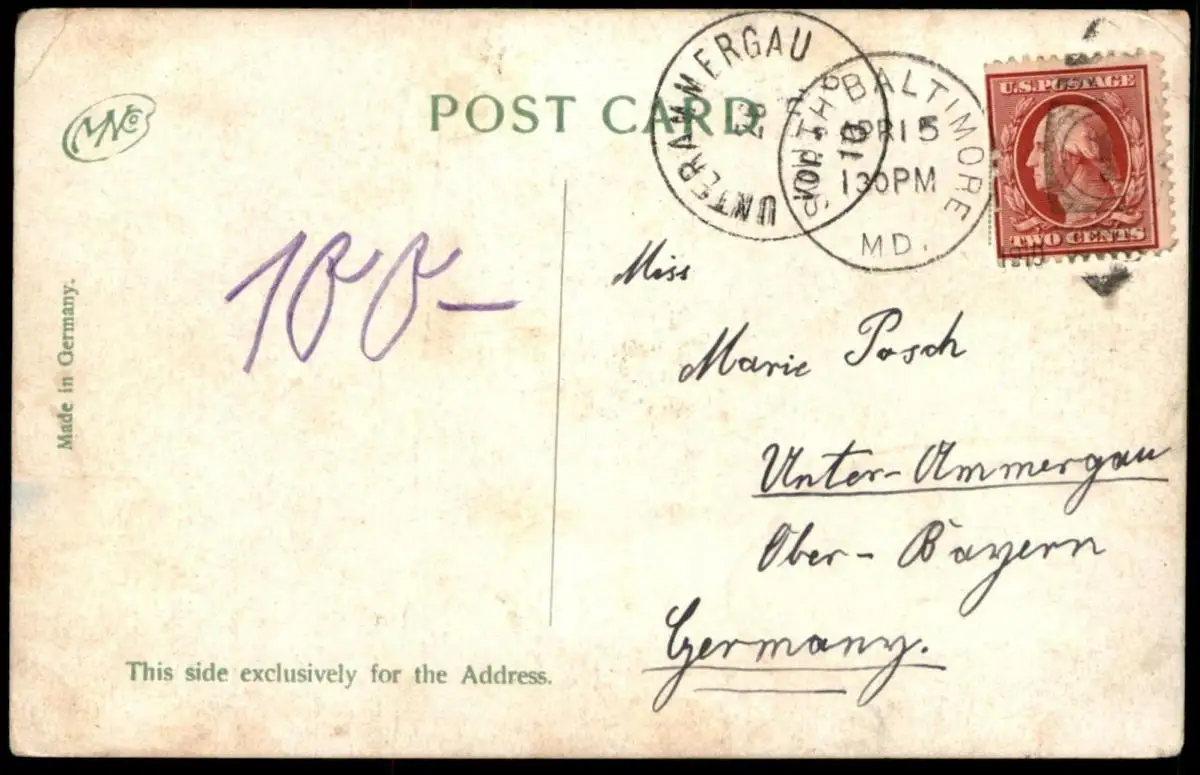 MNCo
POST CARD
UNTERAMMERGAU
SOUTH BALTIMORE
APR 15
130PM
MD.
1910
U.S. POSTAGE
TWO CENTS
100-
Miss
Marie Posch
Unter-Ammergau
Ober-Bayern
Germany.
Made in Germany.
This side exclusively for the Address.